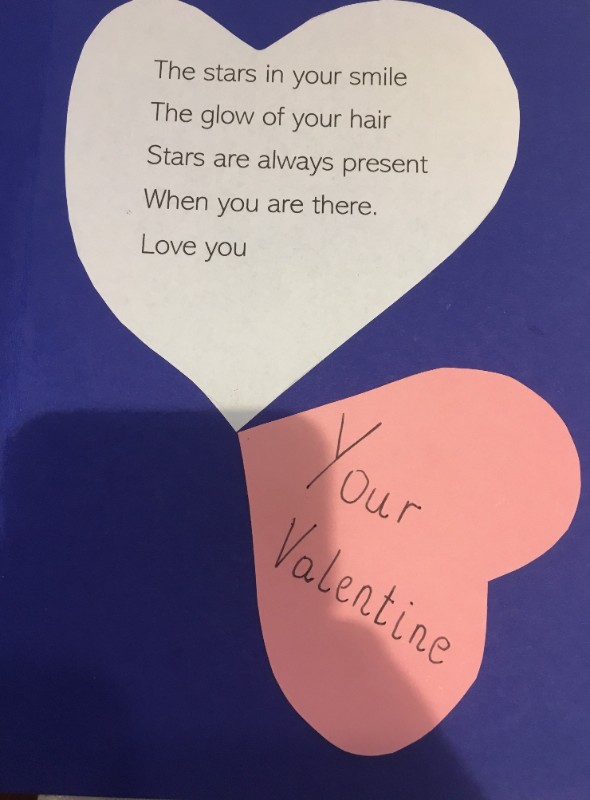 The stars in your smile
The glow of your hair
Stars are always present
When you are there.
Love you
Your
Valentine